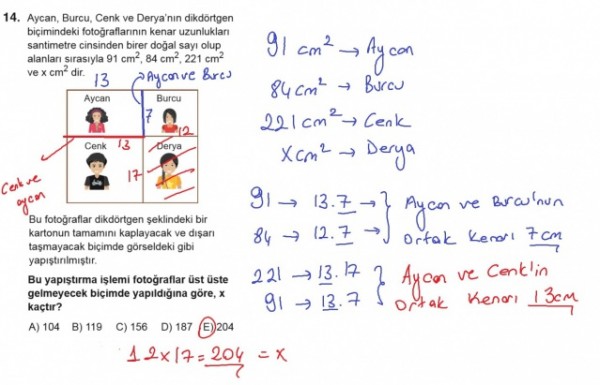 14. Aycan, Burcu, Cenk ve Derya'nın dikdörtgen
biçimindeki fotoğraflarının kenar uzunlukları
santimetre cinsinden birer doğal sayı olup
alanları sırasıyla 91 cm², 84 cm², 221 cm²
ve x cm² dir.
13
Aycan ve Burcu
Aycan
Burcu
7
12
Cenk
13
Derya
17
Cenk ve
aycan
Bu fotoğraflar dikdörtgen şeklindeki bir
kartonun tamamını kaplayacak ve dışarı
taşmayacak biçimde görseldeki gibi
yapıştırılmıştır.
Bu yapıştırma işlemi fotoğraflar üst üste
gelmeyecek biçimde yapıldığına göre, x
kaçtır?
A) 104 B) 119 C) 156 D) 187 E) 204
12x17=204 = x
91 cm² → Aycan
84 cm² → Burcu
221 cm² → Cenk
x cm² → Derya
91 → 13.7 → Aycan ve Burcu'nun
84 → 12.7 → Ortak Kenarı 7cm
221 → 13.17 Aycan ve Cenk'in
91 → 13.7 Ortak Kenarı 13cm